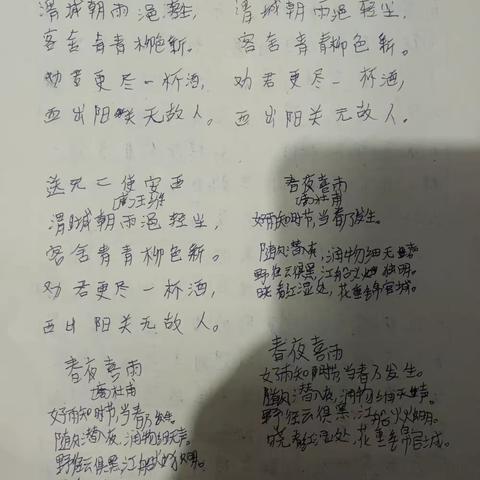 渭城朝雨浥轻尘,
客舍青青柳色新。
劝君更尽一杯酒,
西出阳关无故人。
渭城朝雨浥轻尘,
客舍青青柳色新。
劝君更尽一杯酒,
西出阳关无故人。
送元二使安西
唐王维
渭城朝雨浥轻尘,
客舍青青柳色新。
劝君更尽一杯酒,
西出阳关无故人。
春夜喜雨
唐杜甫
好雨知时节,当春乃发生。
随风潜入夜,润物细无声。
野径云俱黑,江船火独明。
晓看红湿处,花重锦官城。
春夜喜雨
唐杜甫
好雨知时节,当春乃发生。
随风潜入夜,润物细无声。
野径云俱黑,江船火独明。
春夜喜雨
好雨知时节,当春乃发生。
随风潜入夜,润物细无声。
野径云俱黑,江船火独明。
晓看红湿处,花重锦官城。